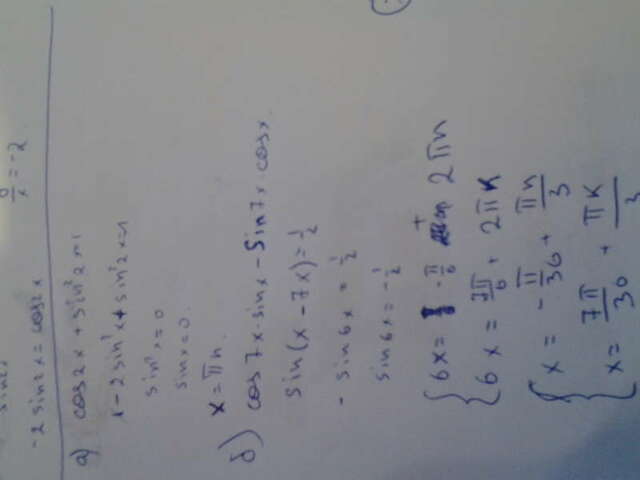 -2 sin2x = cos2x
x = -2
а) cos2x + sin²x = 1
1 - 2sin²x + sin²x = 1
sin²x = 0
sinx = 0
x = πn
б) cos7x · sinx - sin7x · cosx
sin(x - 7x) = 1/2
- sin6x = 1/2
sin6x = -1/2
{ 6x = -π/6 + 2πn
6x = 7π/6 + 2πk
{ x = -π/36 + πn/3
x = 7π/36 + πk/3